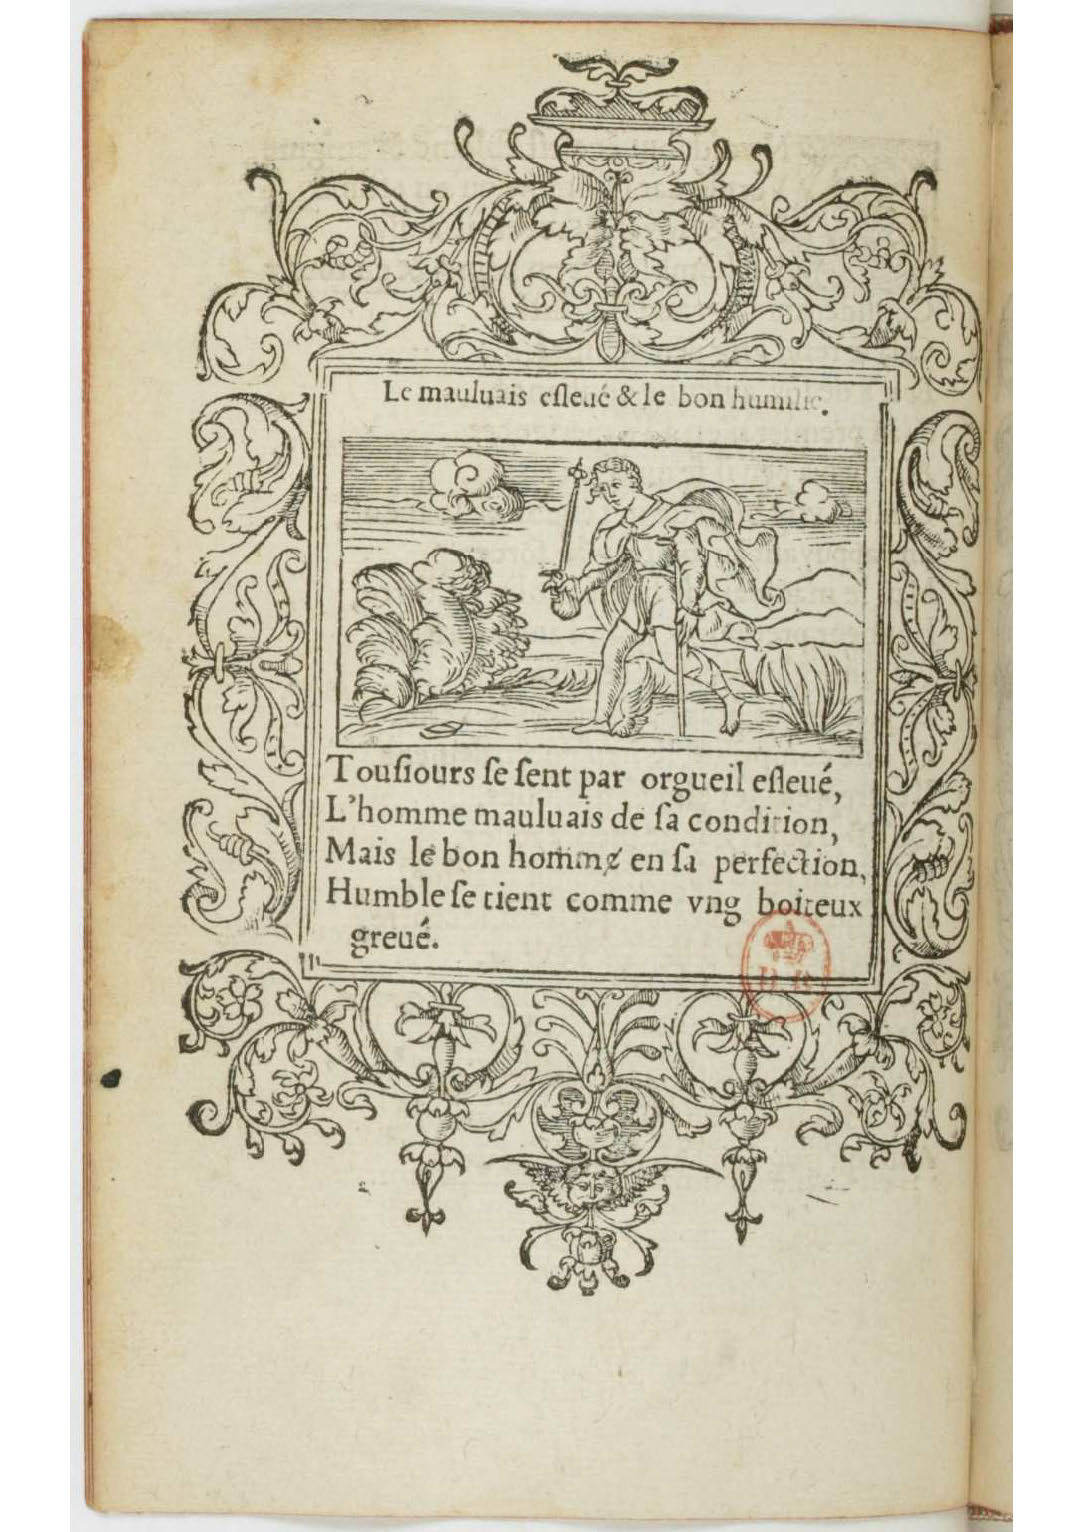 Le mauluais eſleué & le bon humilié.
Touſiours ſe ſent par orgueil eſleué,
L'homme mauluais de ſa condition,
Mais le bon homme en ſa perfection,
Humble ſe tient comme vng boiteux
greué.